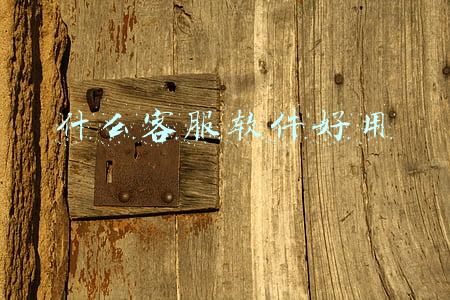 什么客服软件好用